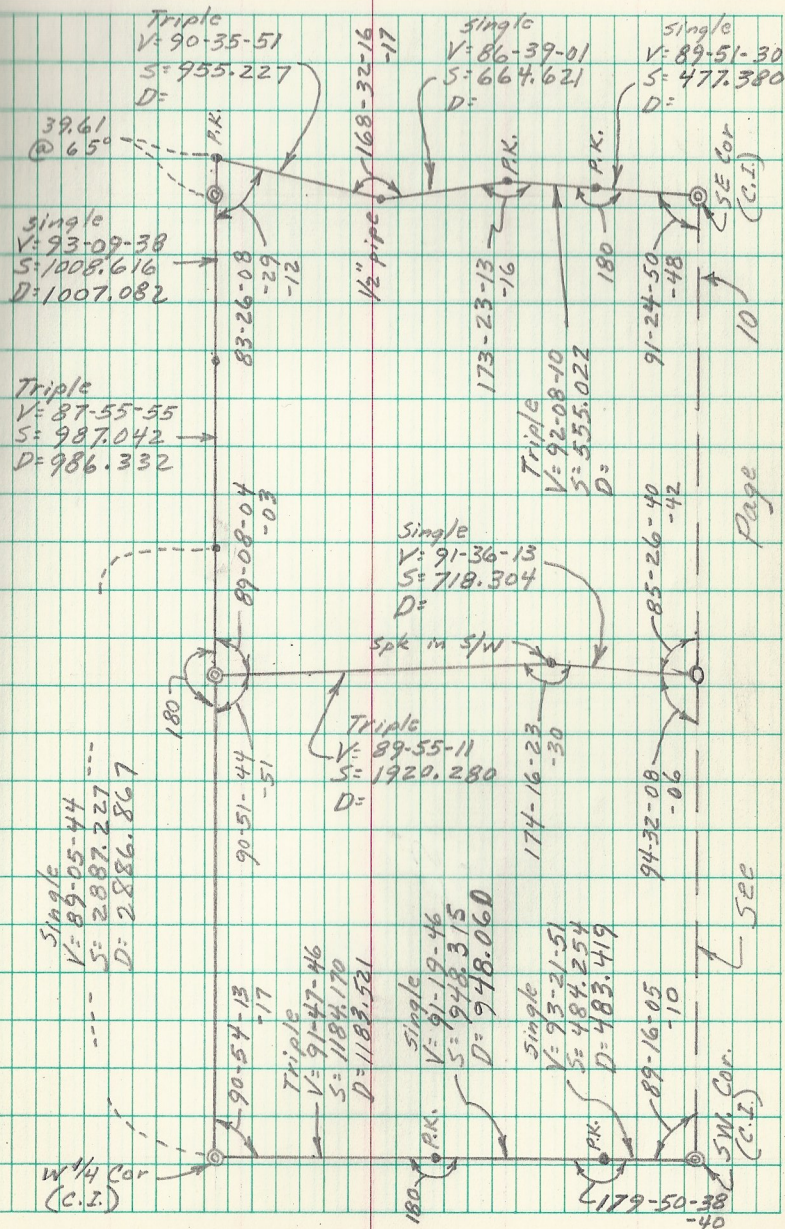 Triple
V= 90-35-51
S= 955.227
D=
39.61
@ 65°
P.K.
168-32-16
-17
Single
V= 86-39-01
S= 664.621
D=
Single
V= 89-51-30
S= 477.380
D=
P.K.
P.K.
SE Cor
(C.I.)
Single
V= 93-09-38
S= 1008.616
D= 1007.082
83-26-08
-29
-12
1/2" pipe
173-23-13
-16
180
91-24-50
-48
10
Triple
V= 92-08-10
S= 555.022
D=
Triple
V= 87-55-55
S= 987.042
D= 986.332
89-08-04
-03
Single
V= 91-36-13
S= 718.304
D=
85-26-40
-42
Page
Spk in S/W
180
90-51-44
-51
Triple
V= 89-55-11
S= 1920.280
D=
174-16-23
-30
94-32-08
-06
Single
V= 89-05-44
S= 2887.227
D= 2886.867
See
90-54-13
-17
Triple
V= 91-47-46
S= 1184.170
D= 1183.521
Single
V= 91-19-46
S= 948.315
D= 948.060
Single
V= 93-21-51
S= 484.254
D= 483.419
89-16-05
-10
W 1/4 Cor
(C.I.)
P.K.
180
P.K.
179-50-38
-40
SW. Cor.
(C.I.)